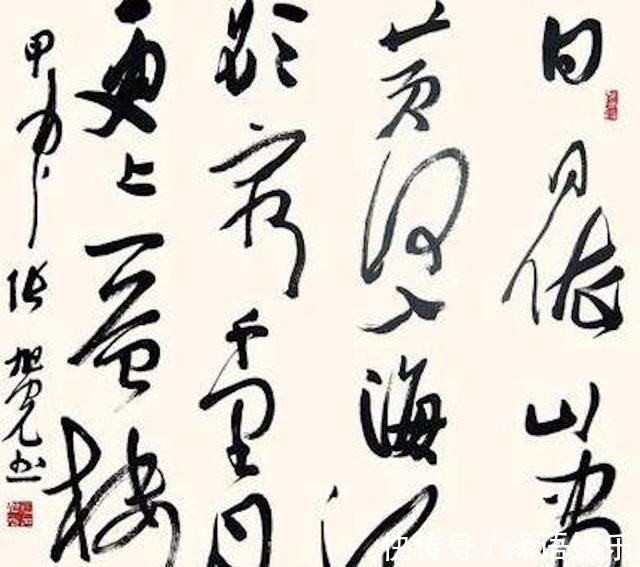 白日依山尽
黄河入海流
欲穷千里目
更上一层楼
甲午 张旭光书
快传号 / 泽语娱乐